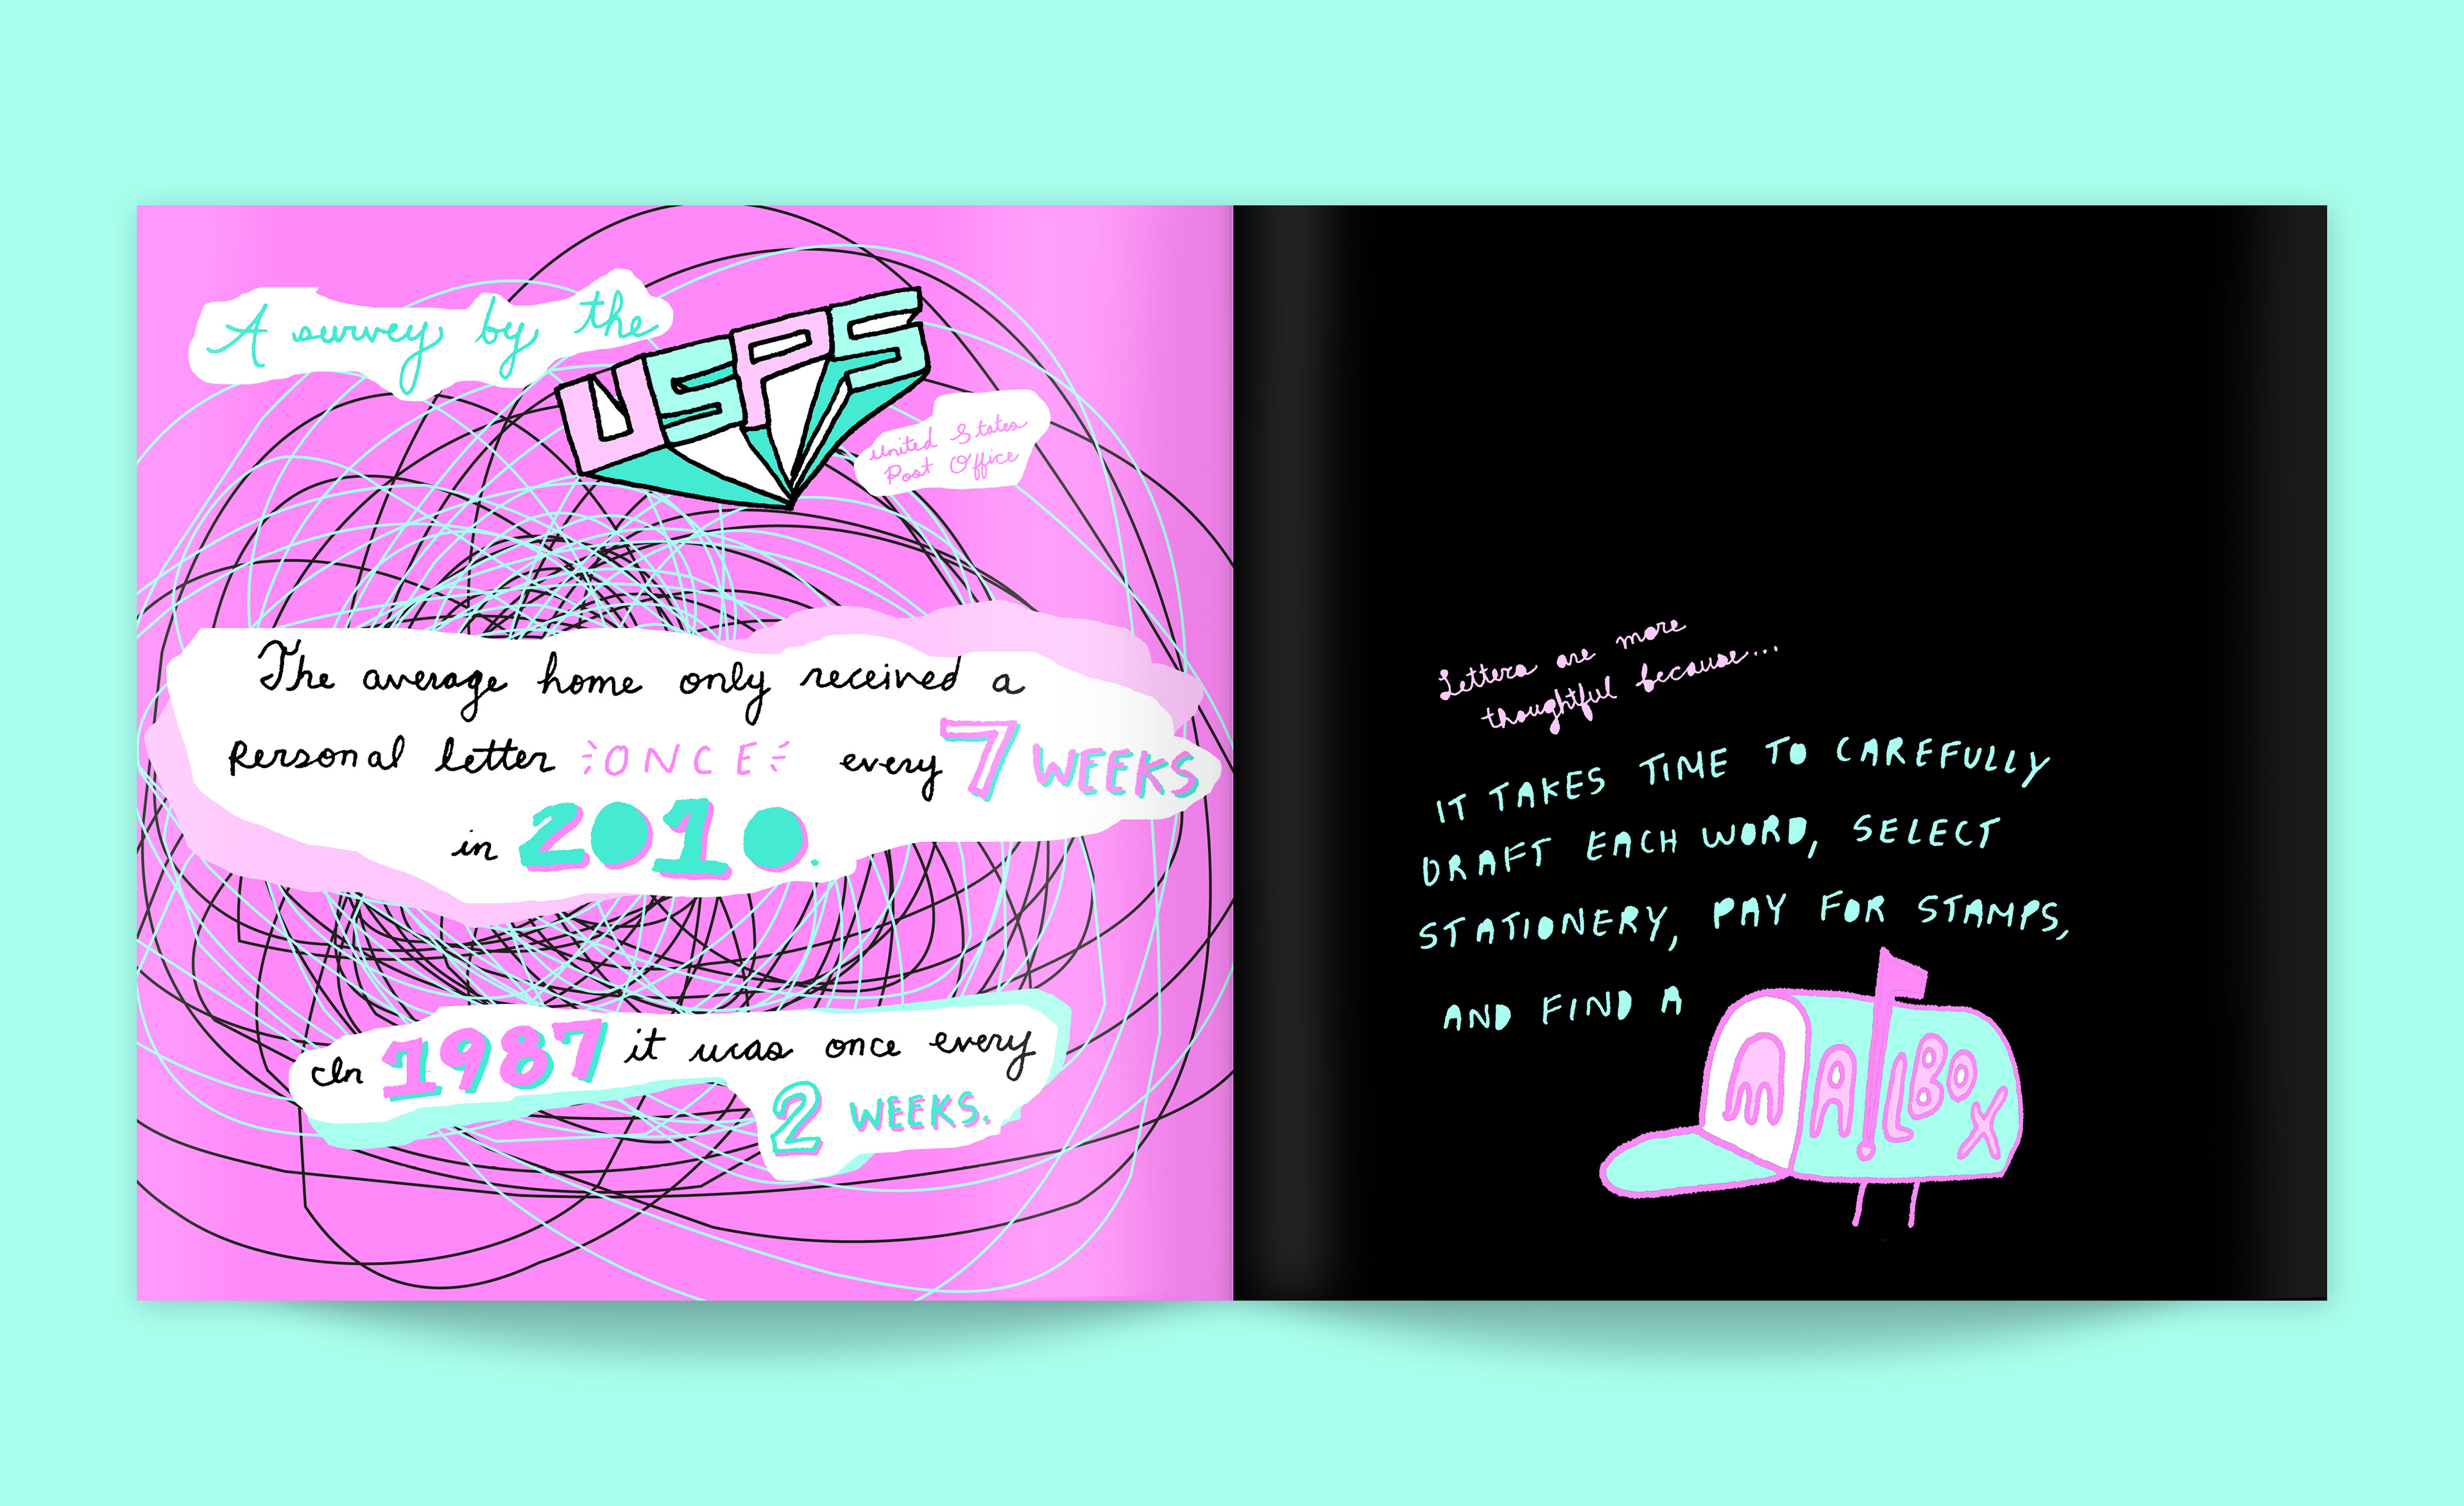 A survey by the
USPS
United States
Post Office
The average home only received a
Personal letter ONCE every 7 WEEKS
in 2010.
In 1987 it was once every
2 WEEKS.
Letters are more
thoughtful because...
IT TAKES TIME TO CAREFULLY
DRAFT EACH WORD, SELECT
STATIONERY, PAY FOR STAMPS,
AND FIND A
MAILBOX